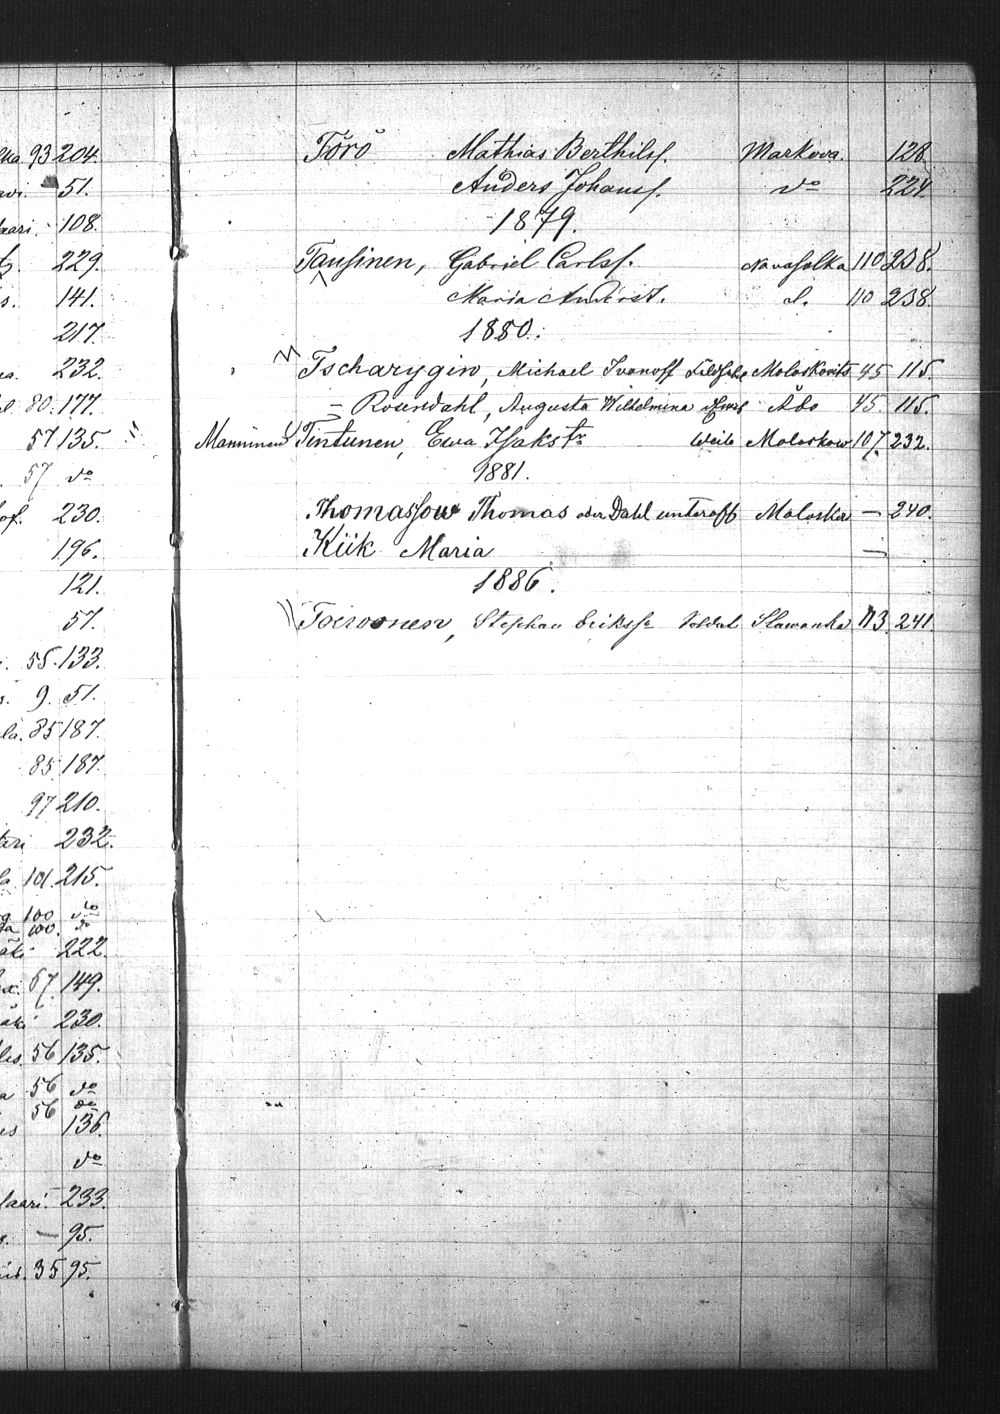 93 204.
51.
108.
229.
141.
217.
232.
80. 177.
57 135.
57 do
230.
196.
121.
57.
55. 133.
9. 51.
85 187.
85 187.
97 210.
232.
101. 215.
100 do
100. do
222.
67. 149.
230.
56 135.
56 do
56 do
136.
do
233.
— 95.
35 95.
Törö Mathias Berthilsf. Markova. 128
Anders Johansf. do 224.
1879.
Tausinen, Gabriel Carlsf. Navasolka 110 238.
Maria Anderst. d. 110 238.
1880.
Tscharygin, Michael Ivanoff Moloskovits 45 115.
= Rosendahl, Augusta Wilhelmina Åbo 45. 115.
Manninen Tintunen, Ewa Isakstr Weib Moloskow 107. 232.
1881.
Thomassow Thomas oder Dahl unteroff Moloskov — 240.
Kiik Maria —
1886.
Toivonen, Stephan Eriksf Soldat Slawanka 113. 241.